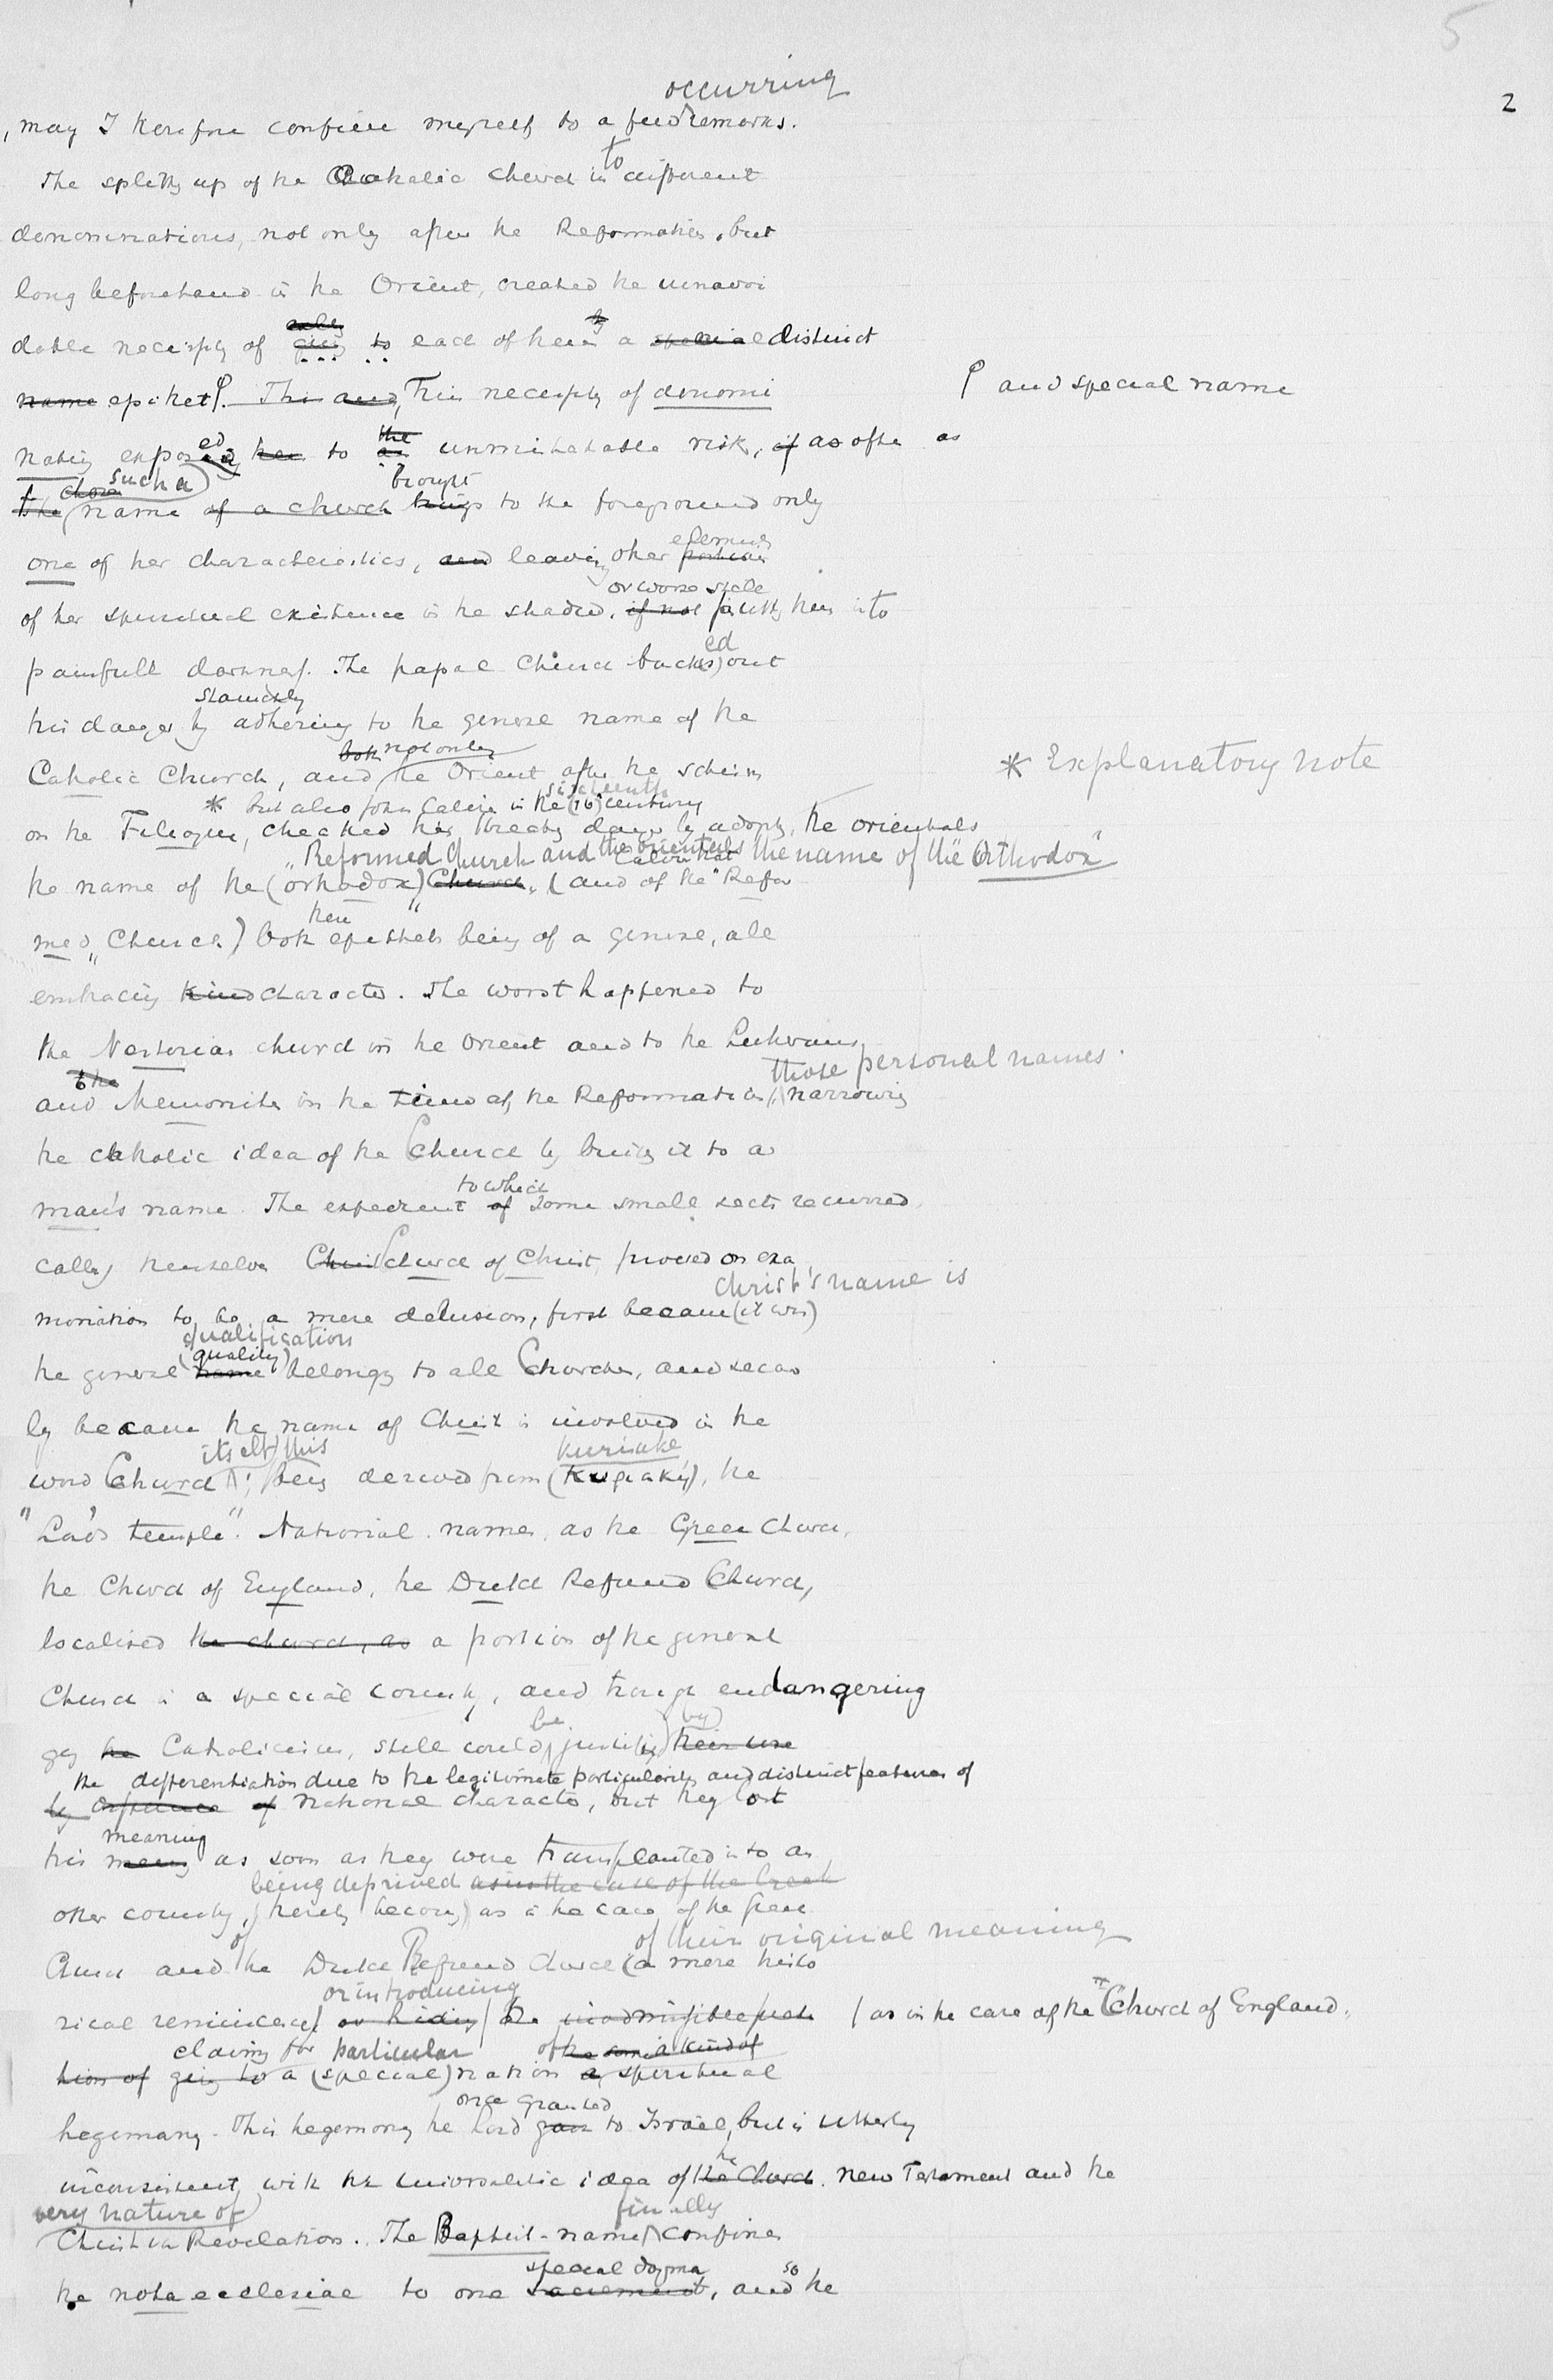 5
2
occurring
may I therefore confine myself to a few remarks.
to
The splitting up of the Catholic Church in different
denominations, not only after the Reformation, but
long beforehand in the Orient, created the unavoi
dable necessity of giving to each of them a special distinct
name epithet. This and, This necessity of denomi
and special name
ed the
nating exposing her to an unmistakable risk, if as often as
chosen such a brought
the name of a church brings to the foreground only
elements
one of her characteristics, and leaving other portions
or worse stile
of her spiritual existence in the shadow, if not putting them into
ed
painfull darkness. The papal Church backs out
staunchly
this danger by adhering to the general name of the
both not only
Catholic Church, and the Orient after the schism
* Explanatory note
* but also John Calvin in the (16) century
sixteenth
on the Filioque, checked this threatening danger by adopting, the orientals
"Reformed Church and the orientals the name of the "Orthodox"
the name of the (orthodox) Church, (and of the "Refor
med" Church) both epithets being of a general, all
embracing kind character. The worst happened to
the Nestorian church in the Orient and to the Lutherans
the those personal names.
and Mennonites in the time of the Reformation, narrowing
the catholic idea of the Church by bring it to a
to which
man's name. The expedient of some small sects recurred,
calling themselves Christ Church of Christ, proved on exa
Christ's name is
mination to be a mere delusion, first because (it was)
qualification
(quality)
the general name belonging to all Churches, and secon
ly because the name of Christ is involved in the
itself this kuriake
word Church, being derived from (Kυριακή), the
"Lord's temple". National names, as the Greek Church,
the Church of England, the Dutch Reformed Church,
localised the church, as a portion of the general
Church in a special country, and though endangering
be by
ging the Catholicism, still could justified their use
the differentiation due to the legitimate particularity and distinct features of
by difference of national character, but they lost
meaning
this meaning as soon as they were transplanted into an
being deprived as in the case of the Greek
other country, thereby becoming as in the case of the Greek
of of their original meaning
Church and the Dutch Reformed Church (a mere histo
or introducing
rical reminiscence) or hiding the inadmissible / as in the case of the Church of England,
claiming for particular of the same a kind of
tion of giving to a (special) nation a spiritual
once granted
hegemony. This hegemony the Lord gave to Israel, but is utterly
the
inconsistent with the universalistic idea of the Church. new Testament and the
very nature of finally
Christian Revelation. The Baptist-name confines
special dogma so
the nota ecclesiae to one sacrament, and the